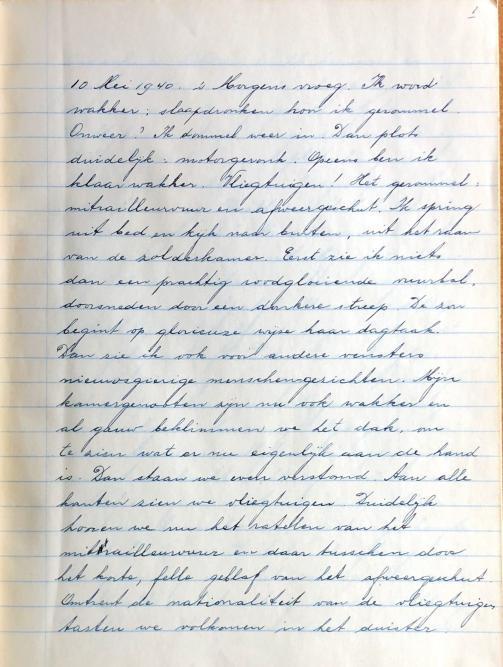 1
10 Mei 1940. 's Morgens vroeg. Ik word
wakker: slaapdronken hoor ik gerommel.
Onweer? Ik dommel weer in. Dan plots
duidelijk: motorgeronk. Opeens ben ik
klaar wakker. Vliegtuigen! Het gerommel:
mitrailleurvuur en afweergeschut. Ik spring
uit bed en kijk naar buiten, uit het raam
van de zolderkamer. Eerst zie ik niets
dan een prachtig roodgloeiende vuurbal,
doorsneden door een donkere streep. De zon
begint op glorieuze wijze haar dagtaak.
Dan zie ik ook voor andere vensters
nieuwsgierige menschengezichten. Mijn
kamergenooten zijn nu ook wakker en
al gauw beklimmen we het dak, om
te zien wat er nu eigenlijk aan de hand
is. Dan staan we even verstomd. Aan alle
kanten zien we vliegtuigen. Duidelijk
hooren we nu het ratelen van het
mitrailleurvuur en daar tusschen door
het korte, felle geblaf van het afweergeschut.
Omtrent de nationaliteit van de vliegtuigen
tasten we volkomen in het duister.